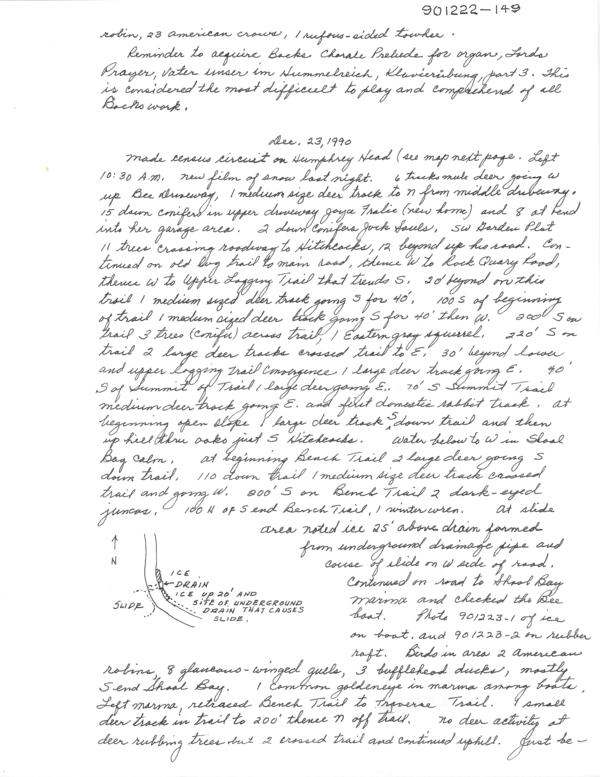 901222-149
robin, 23 american crows, 1 rufous-sided towhee.
Reminder to acquire Bachs Chorale Prelude for organ, Lords
Prayer, Vater unser im Hummelreich, Klavierübung, part 3. This
is considered the most difficult to play and comprehend of all
Bachs work.
Dec. 23, 1990
Made census circuit on Humphrey Head (see map next page. Left
10:30 A.M. new film of snow last night. 6 tracks mule deer going W
up Bee Driveway, 1 medium size deer track to N from middle driveway.
15 down conifers in upper driveway Joyce (new home) and 8 at bend
into her garage area. 2 down conifers Jock Sauls, SW Garden Plat
11 trees crossing roadway to Hitchcocks, 12 beyond up his road. Con-
tinued on old log trail to main road, thence W to Rock Quary Road,
thence W to Upper Logging Trail that trends S. 20' beyond on this
trail 1 medium sized deer track going S for 40'. 100 S of beginning
of trail 1 medium sized deer track going S for 40' then W. 200' S on
trail 3 trees (conifer) across trail, 1 Eastern gray squirrel. 220' S on
trail 2 large deer tracks crossed trail to E. 30' beyond lower
and upper logging trail convergence 1 large deer track going E. 40'
S of Summit of Trail 1 large deer going E. 70' S Summit Trail
medium deer track going E. and first domestic rabbit track. at
beginning open slope 1 large deer track S down trail and then
up hill thru oaks just S Hitchcocks. Water below to W in Shoal
Bay calm. at beginning Bench Trail 2 large deer going S
down trail. 110 down trail 1 medium size deer track crossed
trail and going W. 200' S on Bench Trail 2 dark-eyed
juncos. 100 N of S end Bench Trail, 1 winter wren. At slide
area noted ice 25' above drain formed
from underground drainage pipe and
cause of slide on W side of road.
Continued on road to Shoal Bay
Marina and checked the Bee
boat. Photo 901223-1 of ice
on boat. and 901223-2 on rubber
raft. Birds in area 2 American
N
ICE
DRAIN
ICE UP 20' AND
SITE OF UNDERGROUND
DRAIN THAT CAUSES
SLIDE.
SLIDE
robins, 8 glaucous-winged gulls, 3 bufflehead ducks, mostly
S end Shoal Bay. 1 common goldeneye in marina among boats.
Left marina, retraced Bench Trail to Traverse Trail. 1 small
deer track in trail to 200' thence N off trail. no deer activity at
deer rubbing trees but 2 crossed trail and continued uphill. Just be-